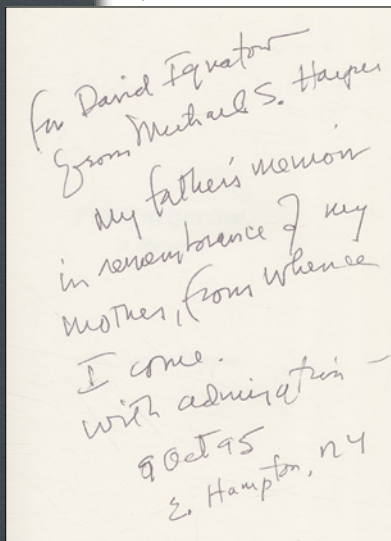 for David Ignatow
from Michael S. Harper
My father's memoir
in remembrance of my
mother, from whence
I come.
with admiration —
9 Oct 95
E. Hampton, NY